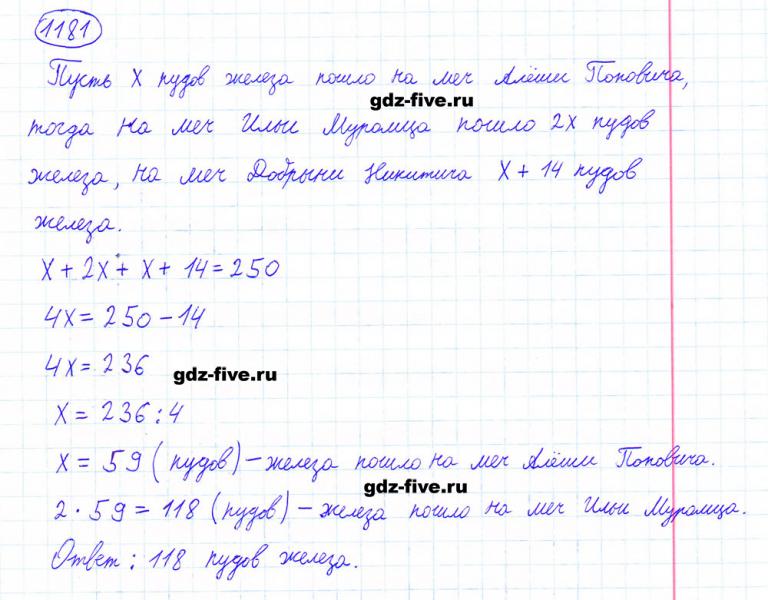 1181
Пусть x пудов железа пошло на меч Алёши Поповича,
gdz-five.ru
тогда на меч Ильи Муромца пошло 2x пудов
железа, на меч Добрыни Никитича x + 14 пудов
железа.
x + 2x + x + 14 = 250
4x = 250 - 14
4x = 236
gdz-five.ru
x = 236 : 4
x = 59 (пудов) - железа пошло на меч Алёши Поповича.
gdz-five.ru
2 · 59 = 118 (пудов) - железа пошло на меч Ильи Муромца.
Ответ: 118 пудов железа.